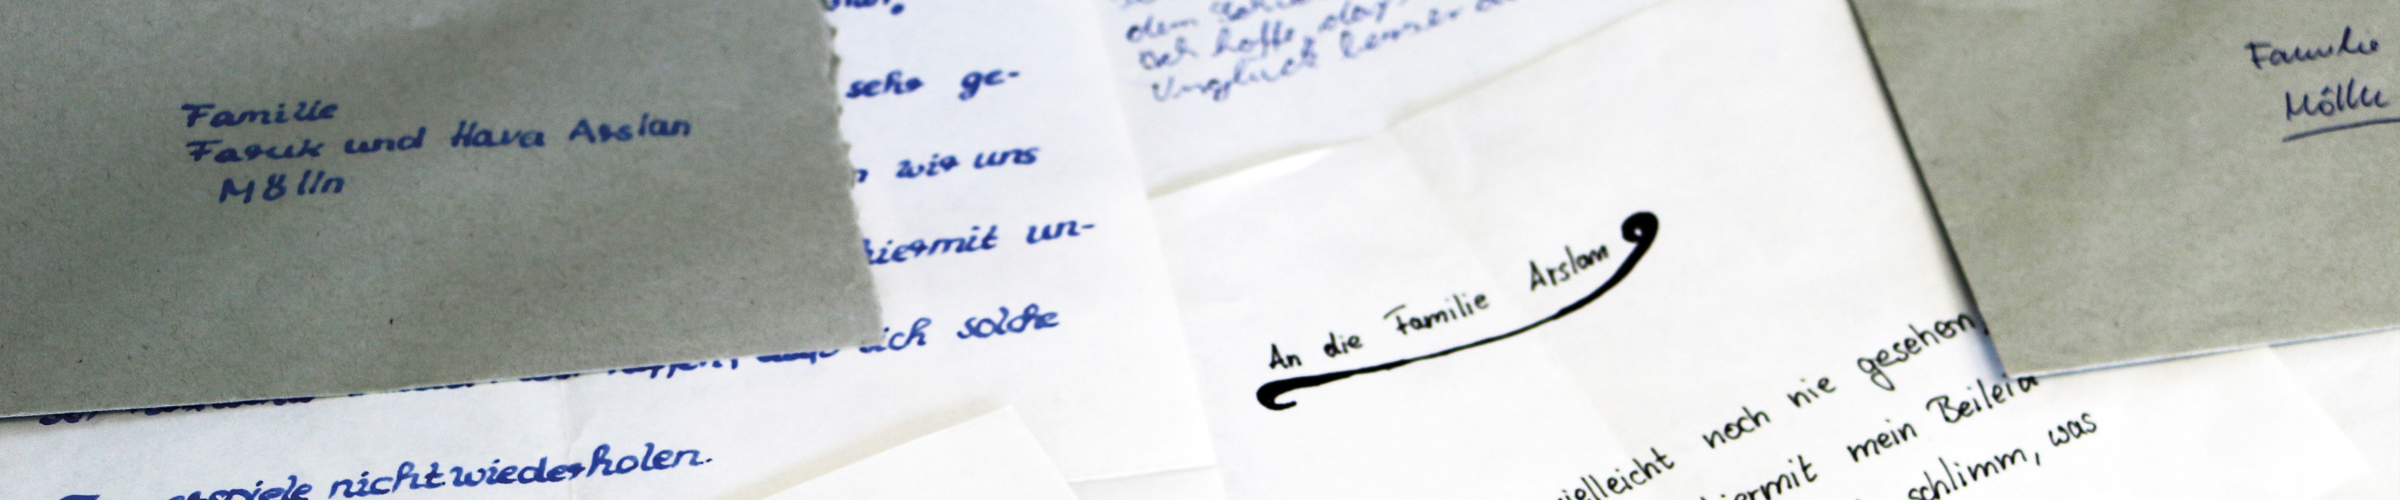 Familie
Faruk und Hava Arslan
Mölln
sehr ge-
wir uns
hiermit un-
sich solche
nicht wiederholen.
dem
Ich hoffe, daß
Unglück
An die Familie Arslan
vielleicht noch nie gesehen,
hiermit mein Beileid
schlimm, was
Familie
Mölln